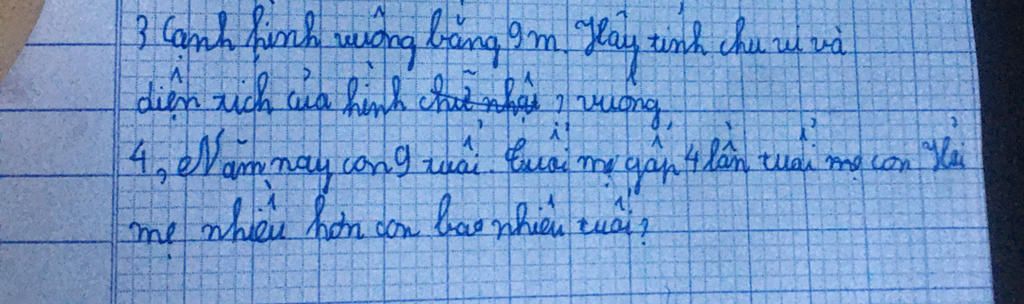 3 Cạnh hình vuông bằng 9m. Hãy tính chu vi và
diện tích của hình chữ nhật, vuông
4, Năm nay con 9 tuổi. tuổi mẹ gấp 4 lần tuổi mẹ con Hỏi
mẹ nhiều hơn con bao nhiêu tuổi?